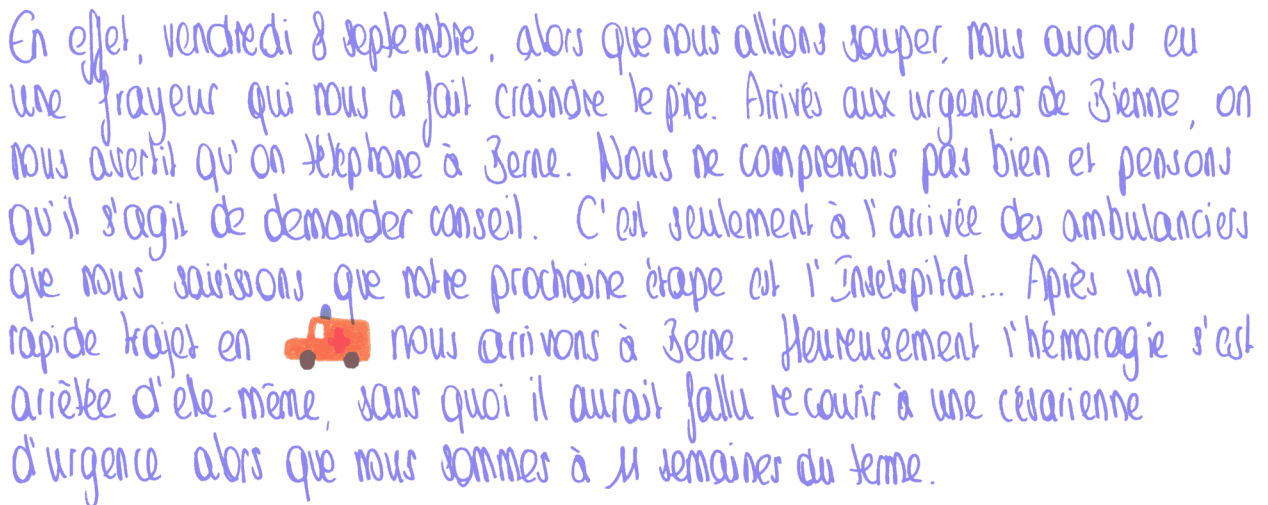 En effet, vendredi 8 septembre, alors que nous allions souper, nous avons eu
une frayeur qui nous a fait craindre le pire. Arrivés aux urgences de Bienne, on
nous avertit qu'on téléphone à Berne. Nous ne comprenons pas bien et pensons
qu'il s'agit de demander conseil. C'est seulement à l'arrivée des ambulanciers
que nous saisissons que notre prochaine étape est l'Inselspital... Après un
rapide trajet en nous arrivons à Berne. Heureusement l'hémoragie s'est
arrêtée d'elle-même, sans quoi il aurait fallu recourir à une césarienne
d'urgence alors que nous sommes à 11 semaines du terme.